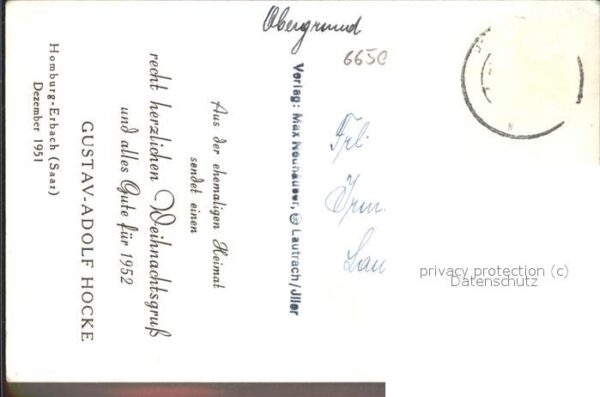 Obergrund
665C
Aus der ehemaligen Heimat
sendet einen
recht herzlichen Weihnachtsgruß
und alles Gute für 1952
GUSTAV-ADOLF HOCKE
Homburg-Erbach (Saar)
Dezember 1951
Verlag: Max Neuhauser, Lautrach/Jller
Frl.
Irm
Lau
privacy protection (c)
Datenschutz